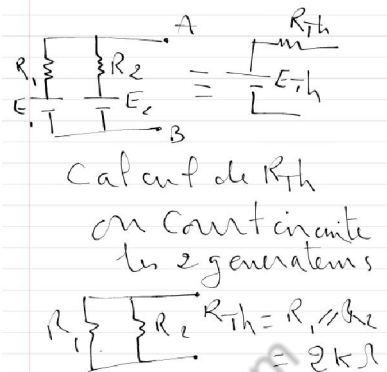 A
R₁ R₂ R_Th
E E₂ = E_Th
B
Calcul de R_Th
on court circuite
les 2 generateurs
R₁ R₂ R_Th = R₁ // R₂
= 2KΩ